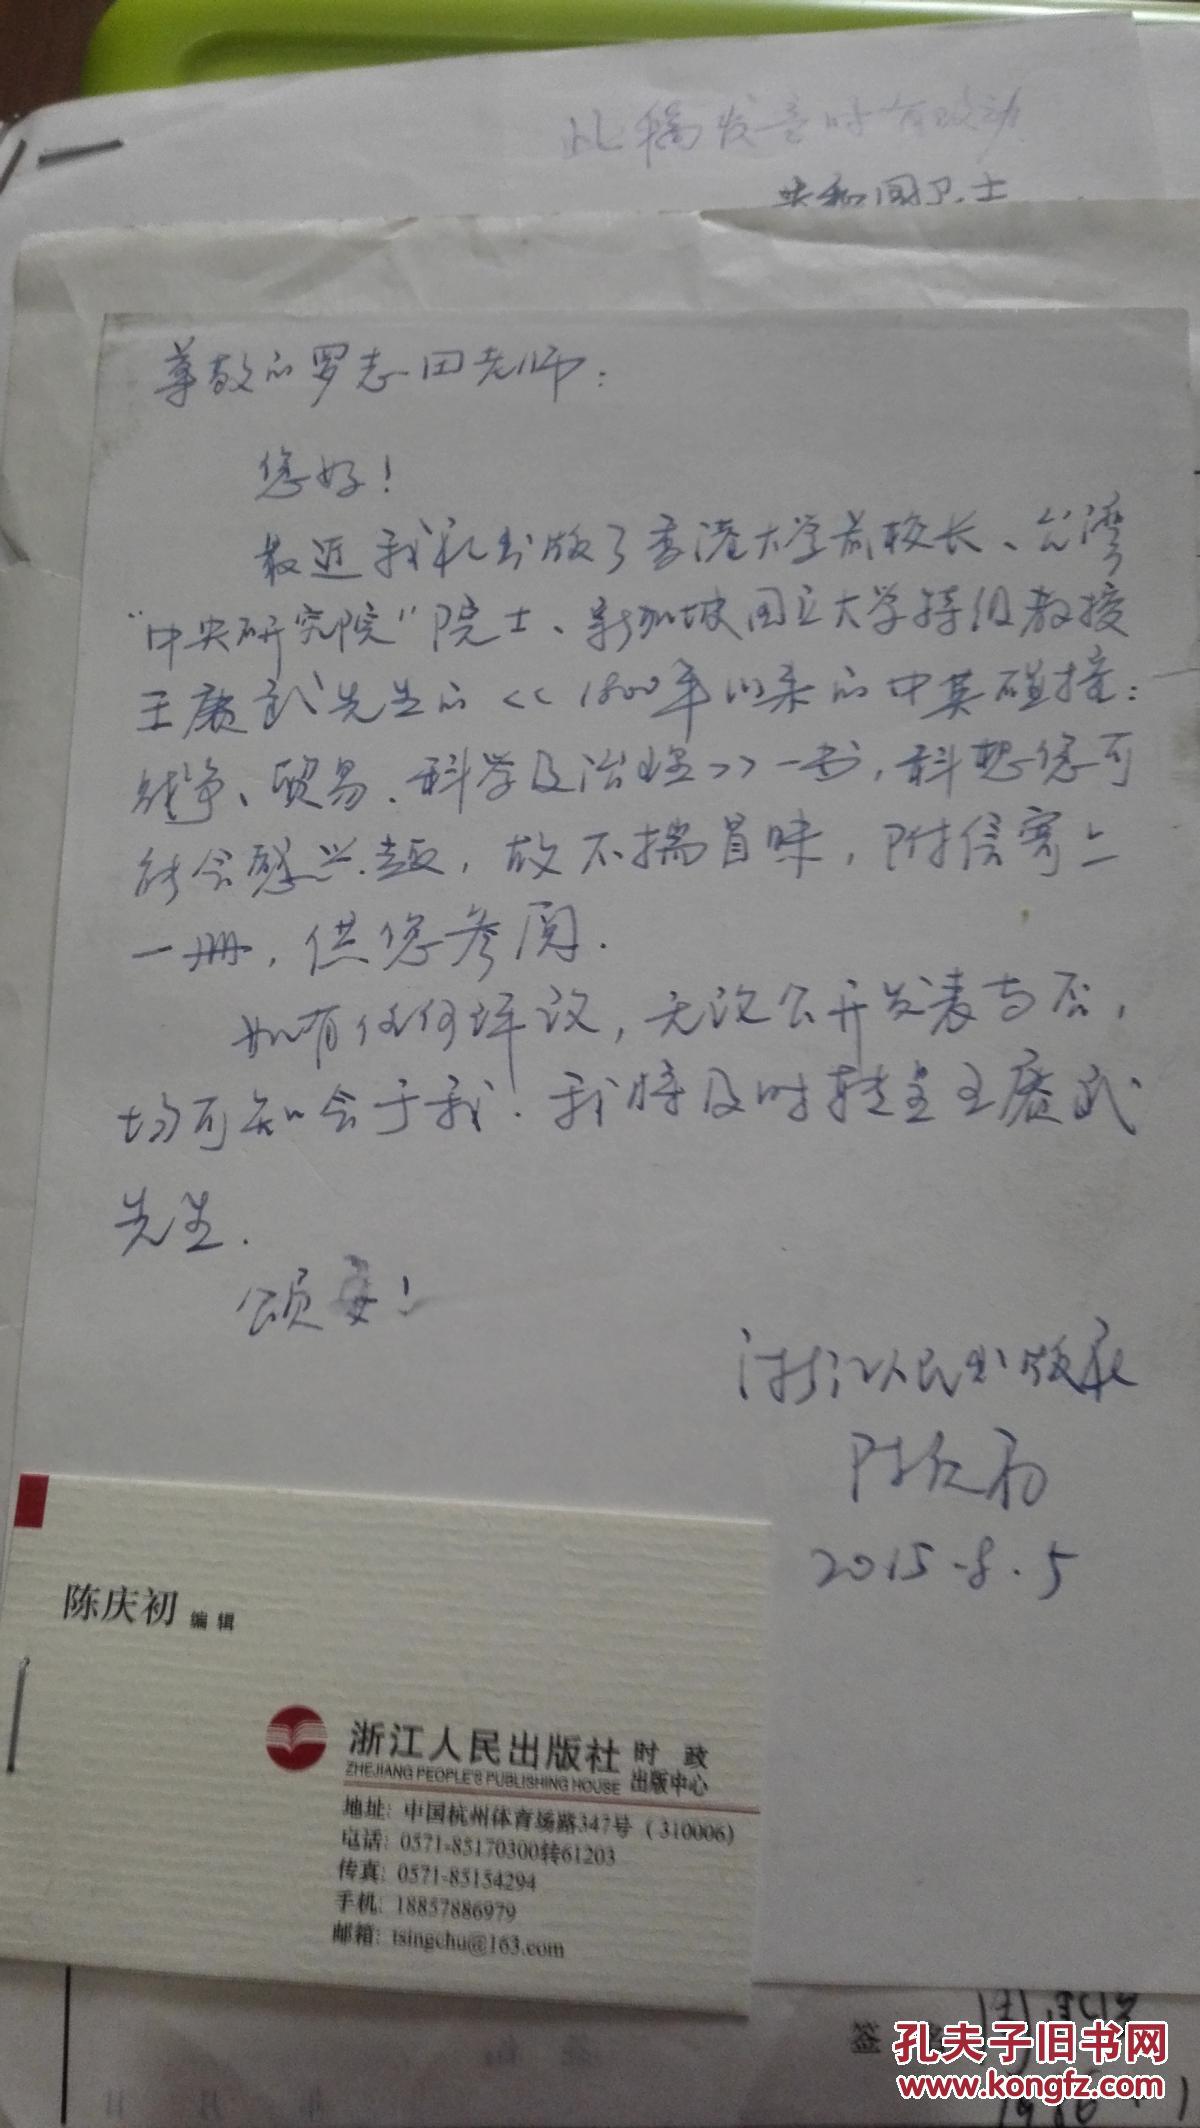 此稿发言时有改动
共和国卫士
尊敬的罗志田老师：
您好！
最近我社出版了香港大学前校长、台湾
“中央研究院”院士、新加坡国立大学特级教授
王赓武先生的<<1800年以来的中英碰撞：
战争、贸易、科学及治理>>一书，料想您可
能会感兴趣，故不揣冒昧，附信寄上
一册，供您参阅.
如有任何评议，无论公开发表与否，
均可知会于我.我将及时转呈王赓武
先生.
颂安！
浙江人民出版社
陈庆初
2015-8.5
陈庆初 编辑
浙江人民出版社 时政
ZHEJIANG PEOPLE'S PUBLISHING HOUSE 出版中心
地址：中国杭州体育场路347号（310006）
电话：0571-85170300转61203
传真：0571-85154294
手机：18857886979
邮箱：tsingchu@163.com
签
孔夫子旧书网
www.kongfz.com